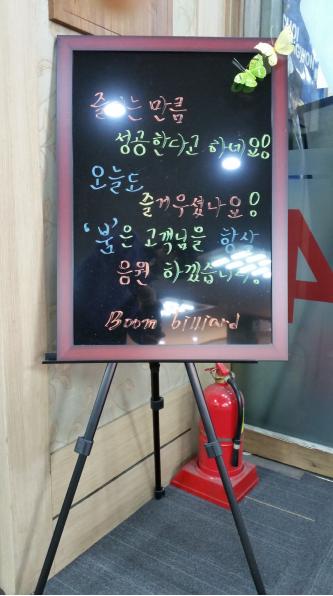 즐기는 만큼
성공한다고 하네요!
오늘도
즐거우셨나요!
'붐'은 고객님을 항상
응원 하겠습니다.
Boom billiard